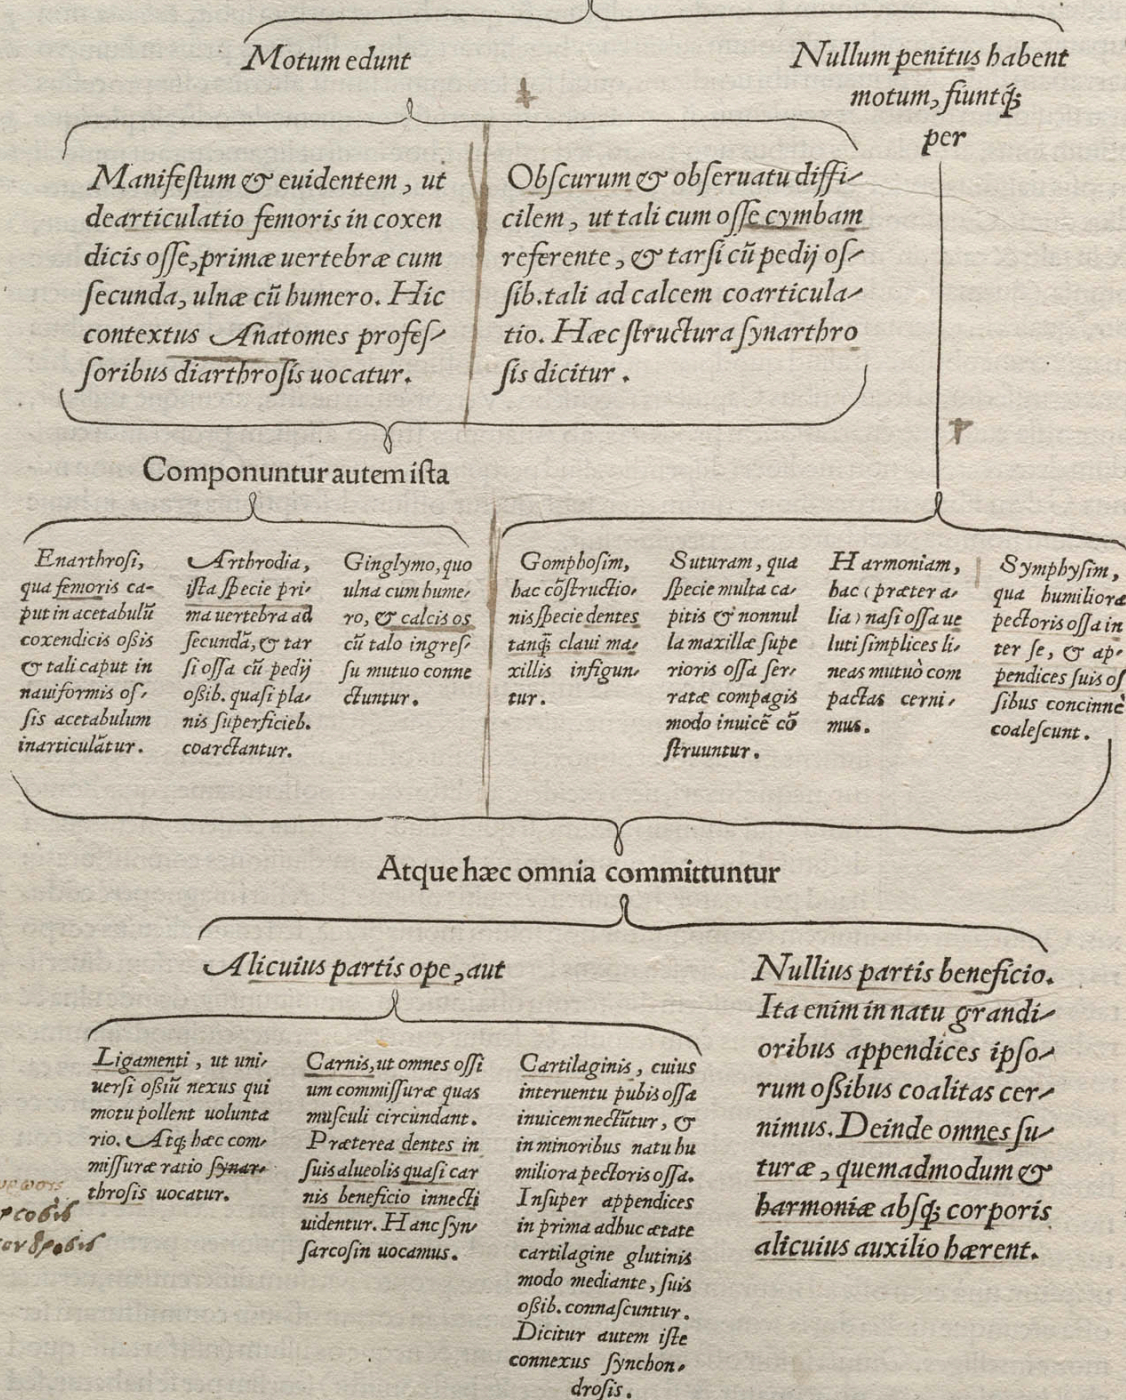 Motum edunt
Nullum penitus habent
motum, fiuntq́;
per
Manifestum & euidentem, ut
dearticulatio femoris in coxen
dicis osse, primæ uertebræ cum
secunda, ulnæ cũ humero. Hic
contextus Anatomes profes-
soribus diarthrosis uocatur.
Obscurum & obseruatu diffi-
cilem, ut tali cum osse cymbam
referente, & tarsi cũ pedij os-
sib. tali ad calcem coarticula-
tio. Hæc structura synarthro
sis dicitur.
Componuntur autem ista
Enarthrosi,
qua femoris ca-
put in acetabulũ
coxendicis oßis
& tali caput in
nauiformis os-
sis acetabulum
inarticulãtur.
Arthrodia,
ista specie pri-
ma uertebra ad
secundã, & tar
si ossa cũ pedij
oßib. quasi pla-
nis superficieb.
coarctantur.
Ginglymo, quo
ulna cum hume-
ro, & calcis os
cũ talo ingres-
su mutuo conne
ctuntur.
Gomphosim,
hac cõstructio-
nis specie dentes
tanq̃; claui ma-
xillis infigun-
tur.
Suturam, qua
specie multa ca-
pitis & nonnul
la maxillæ supe
rioris ossa ser-
ratæ compagis
modo inuicẽ cõ
struuntur.
Harmoniam,
hac (præter a-
lia) nasi ossa ue
luti simplices li-
neas mutuò com
pactas cerni-
mus.
Symphysim,
qua humiliora
pectoris ossa in
ter se, & ap-
pendices suis os
sibus concinnè
coalescunt.
Atque hæc omnia committuntur
Alicuius partis ope, aut
Nullius partis beneficio.
Ita enim in natu grandi-
oribus appendices ipso-
rum oßibus coalitas cer-
nimus. Deinde omnes su-
turæ, quemadmodum &
harmoniæ absq́; corporis
alicuius auxilio hærent.
Ligamenti, ut uni-
uersi oßiũ nexus qui
motu pollent uolunta
rio. Atq; hæc com-
missuræ ratio synar-
throsis uocatur.
Carnis, ut omnes ossi
um commissuræ quas
musculi circũdant.
Præterea dentes in
suis alueolis quasi car
nis beneficio innecti
uidentur. Hanc syn-
sarcosin uocamus.
Cartilaginis, cuius
interuentu pubis ossa
inuicem nectũtur, &
in minoribus natu hu
miliora pectoris ossa.
Insuper appendices
in prima adhuc ætate
cartilagine glutinis
modo mediante, suis
oßib. connascuntur.
Dicitur autem iste
connexus synchon-
drosis.